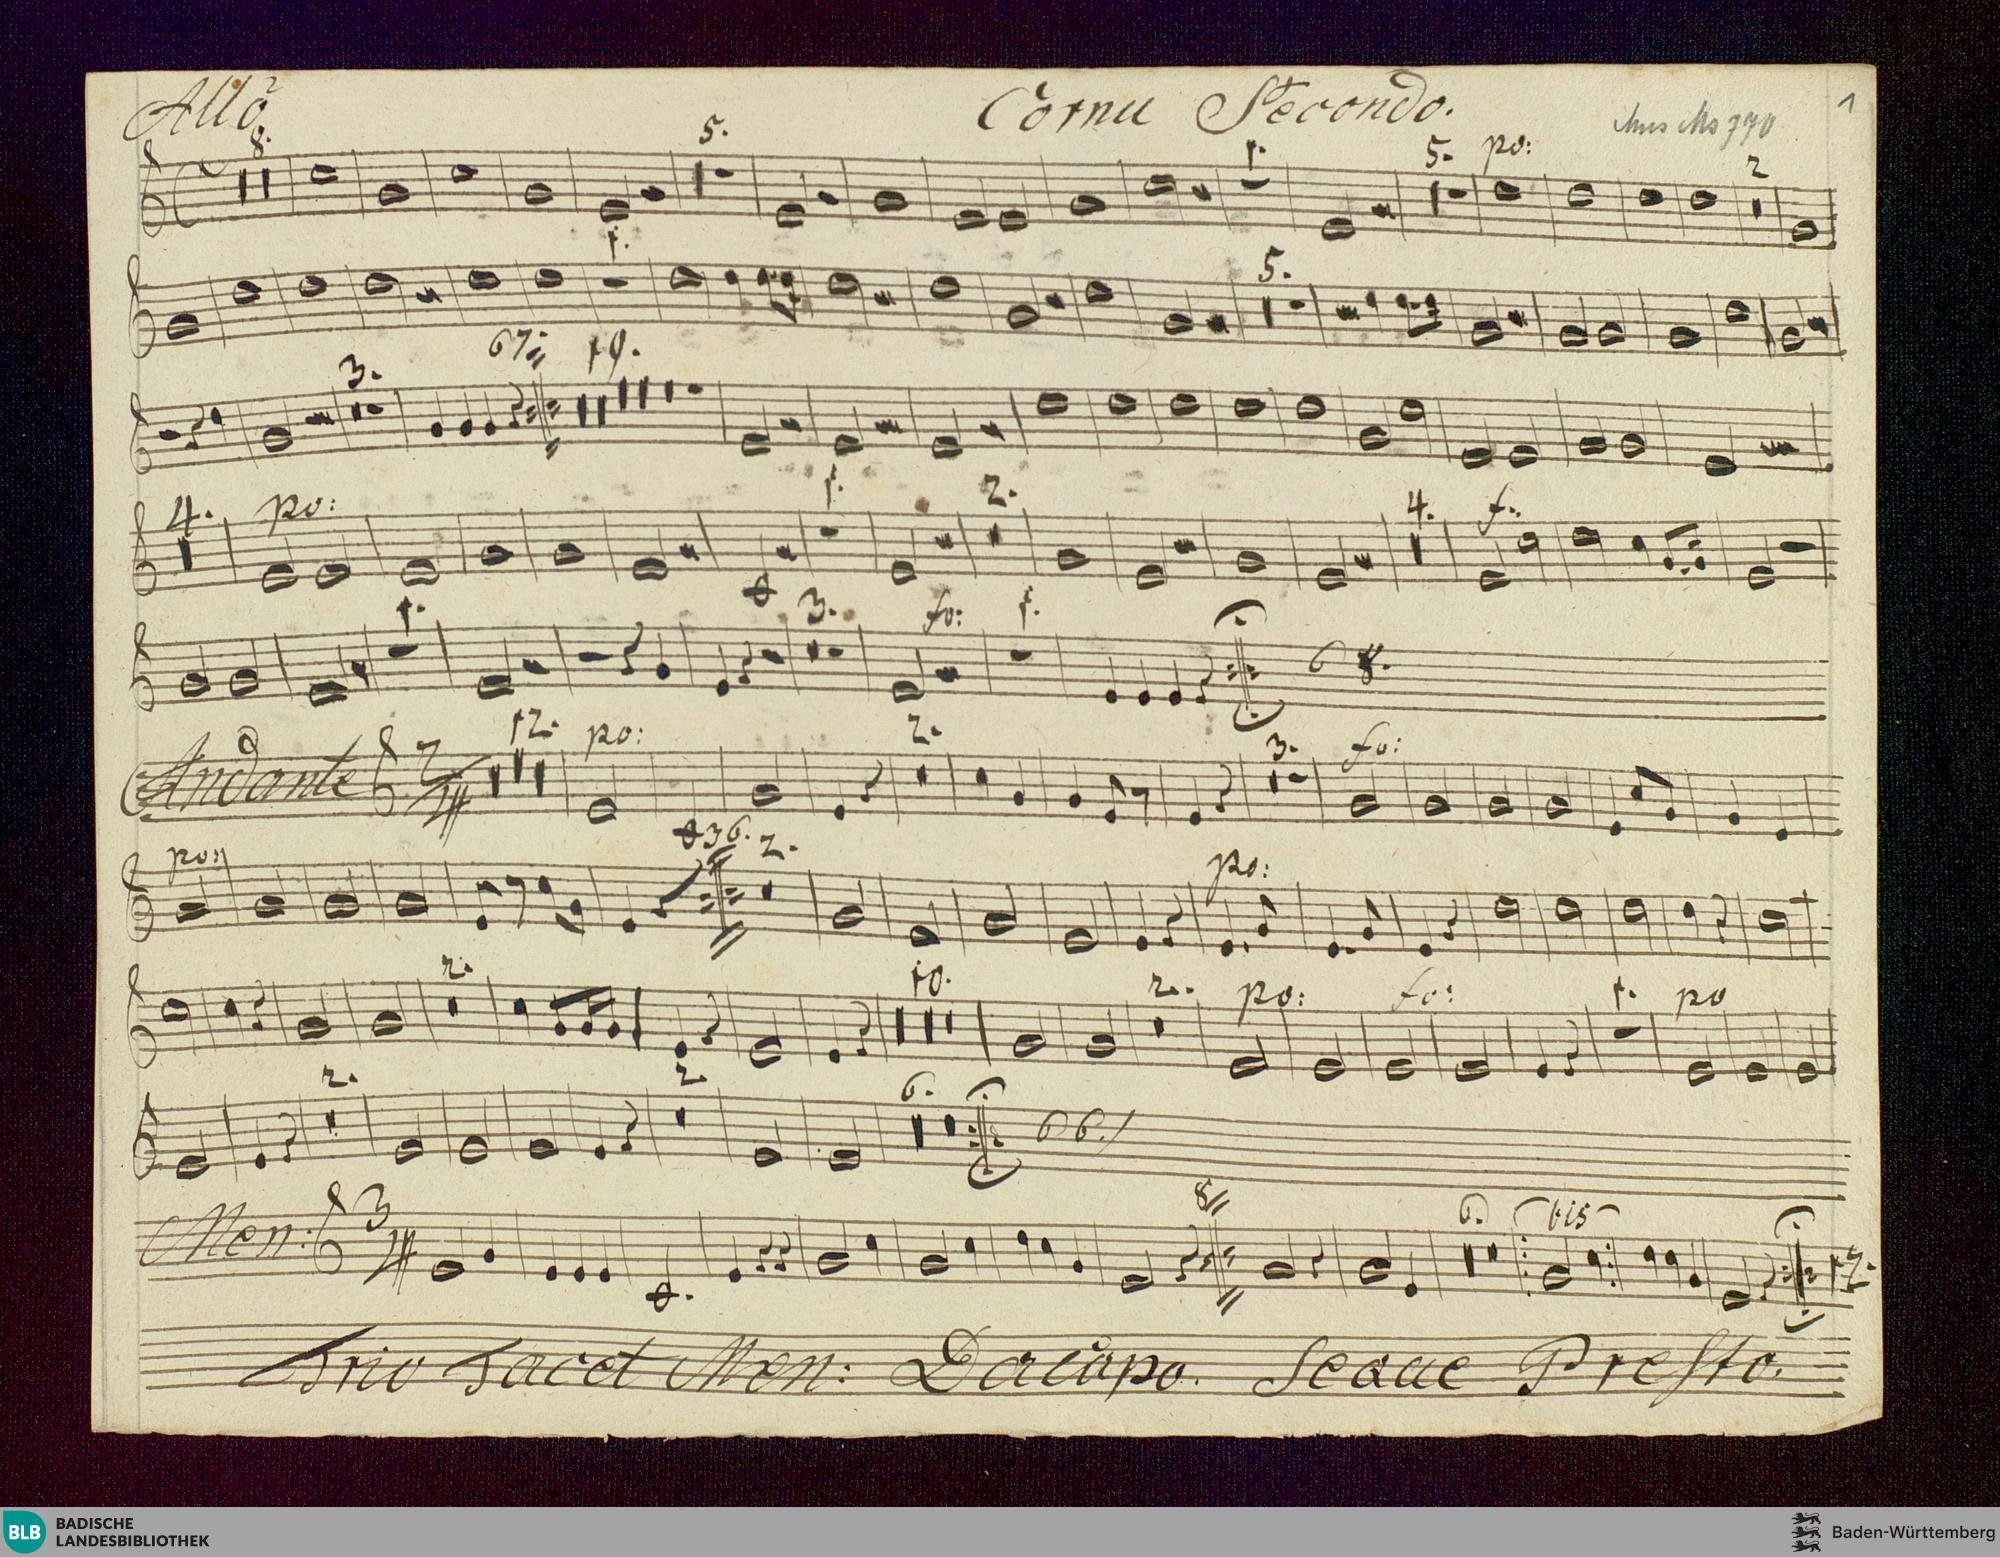 Allo Cornu Secondo. Mus Ms 770 1
8. 5. 1. 5. po: 2
1. 5.
3. 67: 19.
4. po: 1. 2. 4. f.
1. 3. fo: 1.
Andante 2/4 12. po: 2. 3. fo:
po: 36. 2. po:
2. 10. 2. po: fo: 1. po
2. 2. 6. 66.
Men: 3/4 8 6. bis 17.
Trio Tacet Men: Da capo. Seque Presto.
BLB BADISCHE
LANDESBIBLIOTHEK
Baden-Württemberg